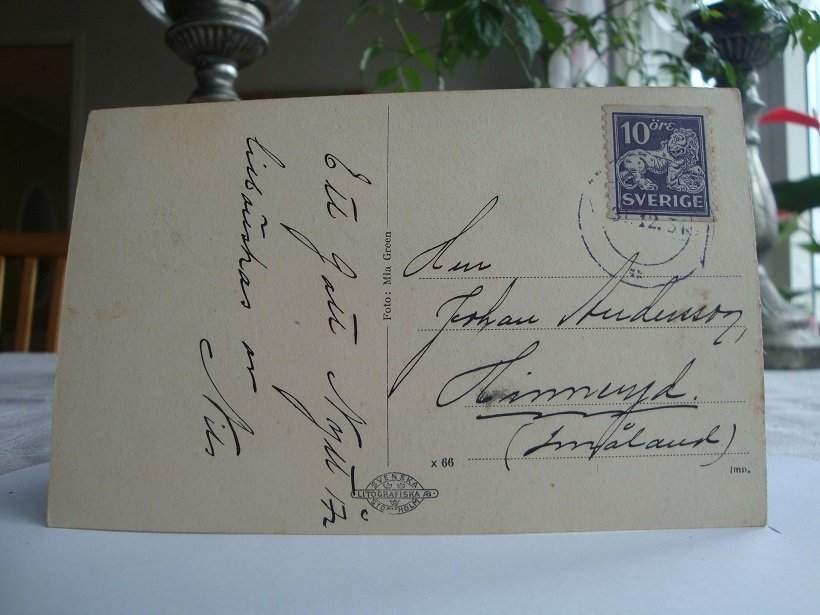 Ett Gott Nytt År
tillönskas av
Nils
Foto: Mia Green
10 öre
SVERIGE
12.3
Herr
Johan Andersson,
Hinneryd.
(Småland)
x 66
SVENSKA
LITOGRAFISKA AB
STOCKHOLM
Imp.